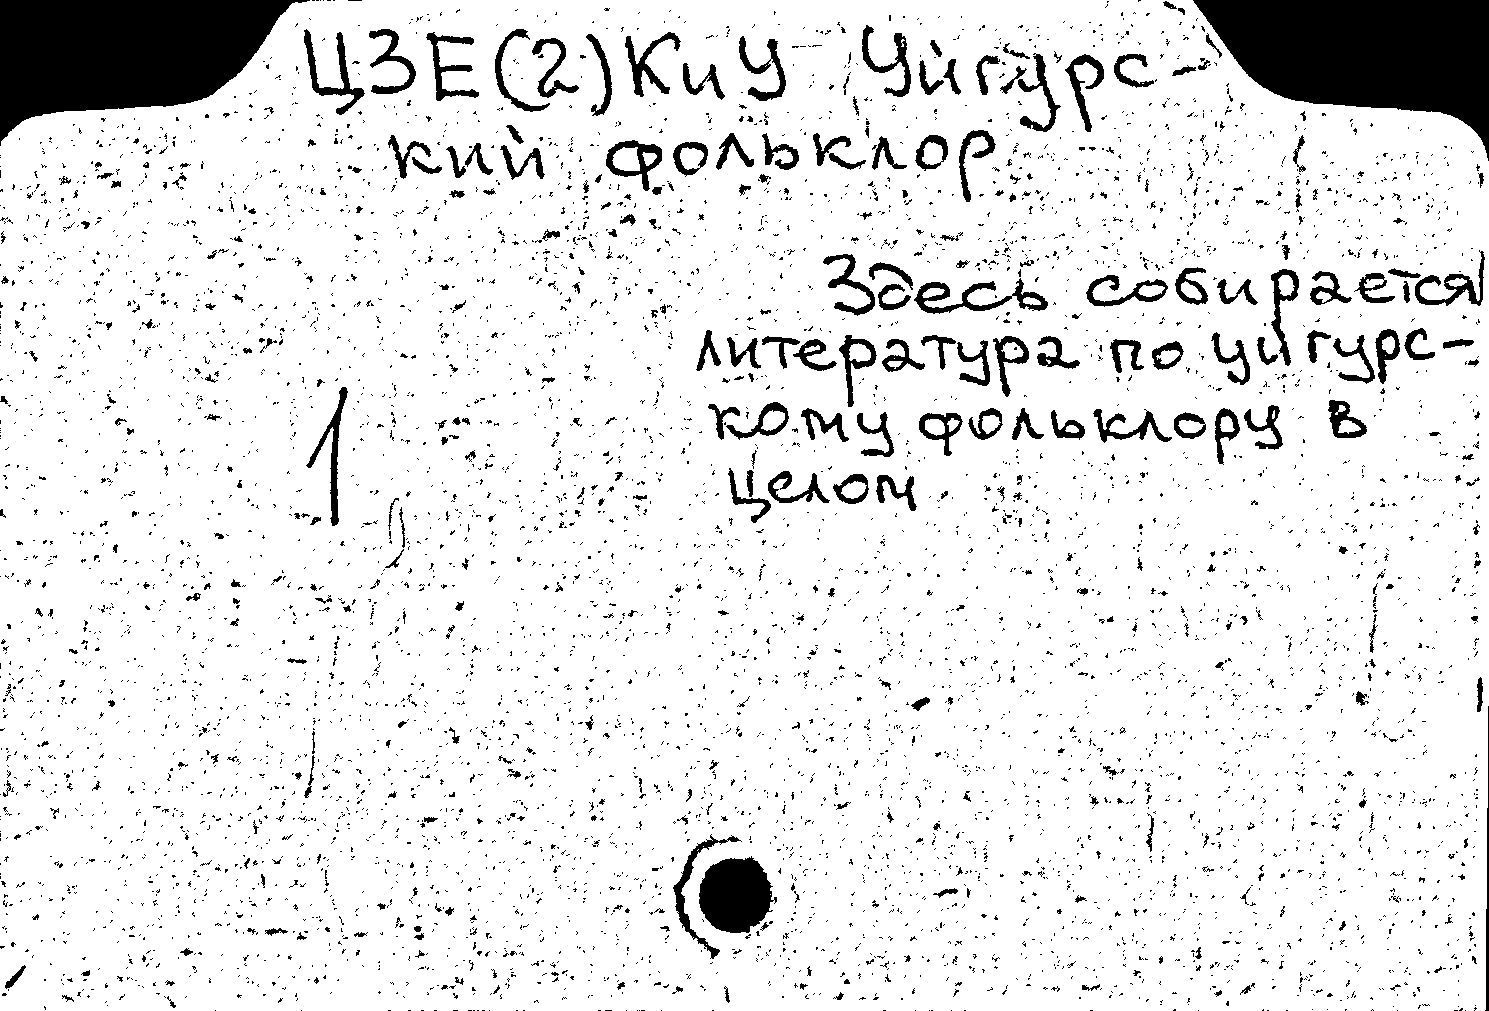 ЦЗЕ(2)КиУ Уйгурс-
кий фольклор
Здесь собирается
литература по уйгурс-
кому фольклору в
целом
1